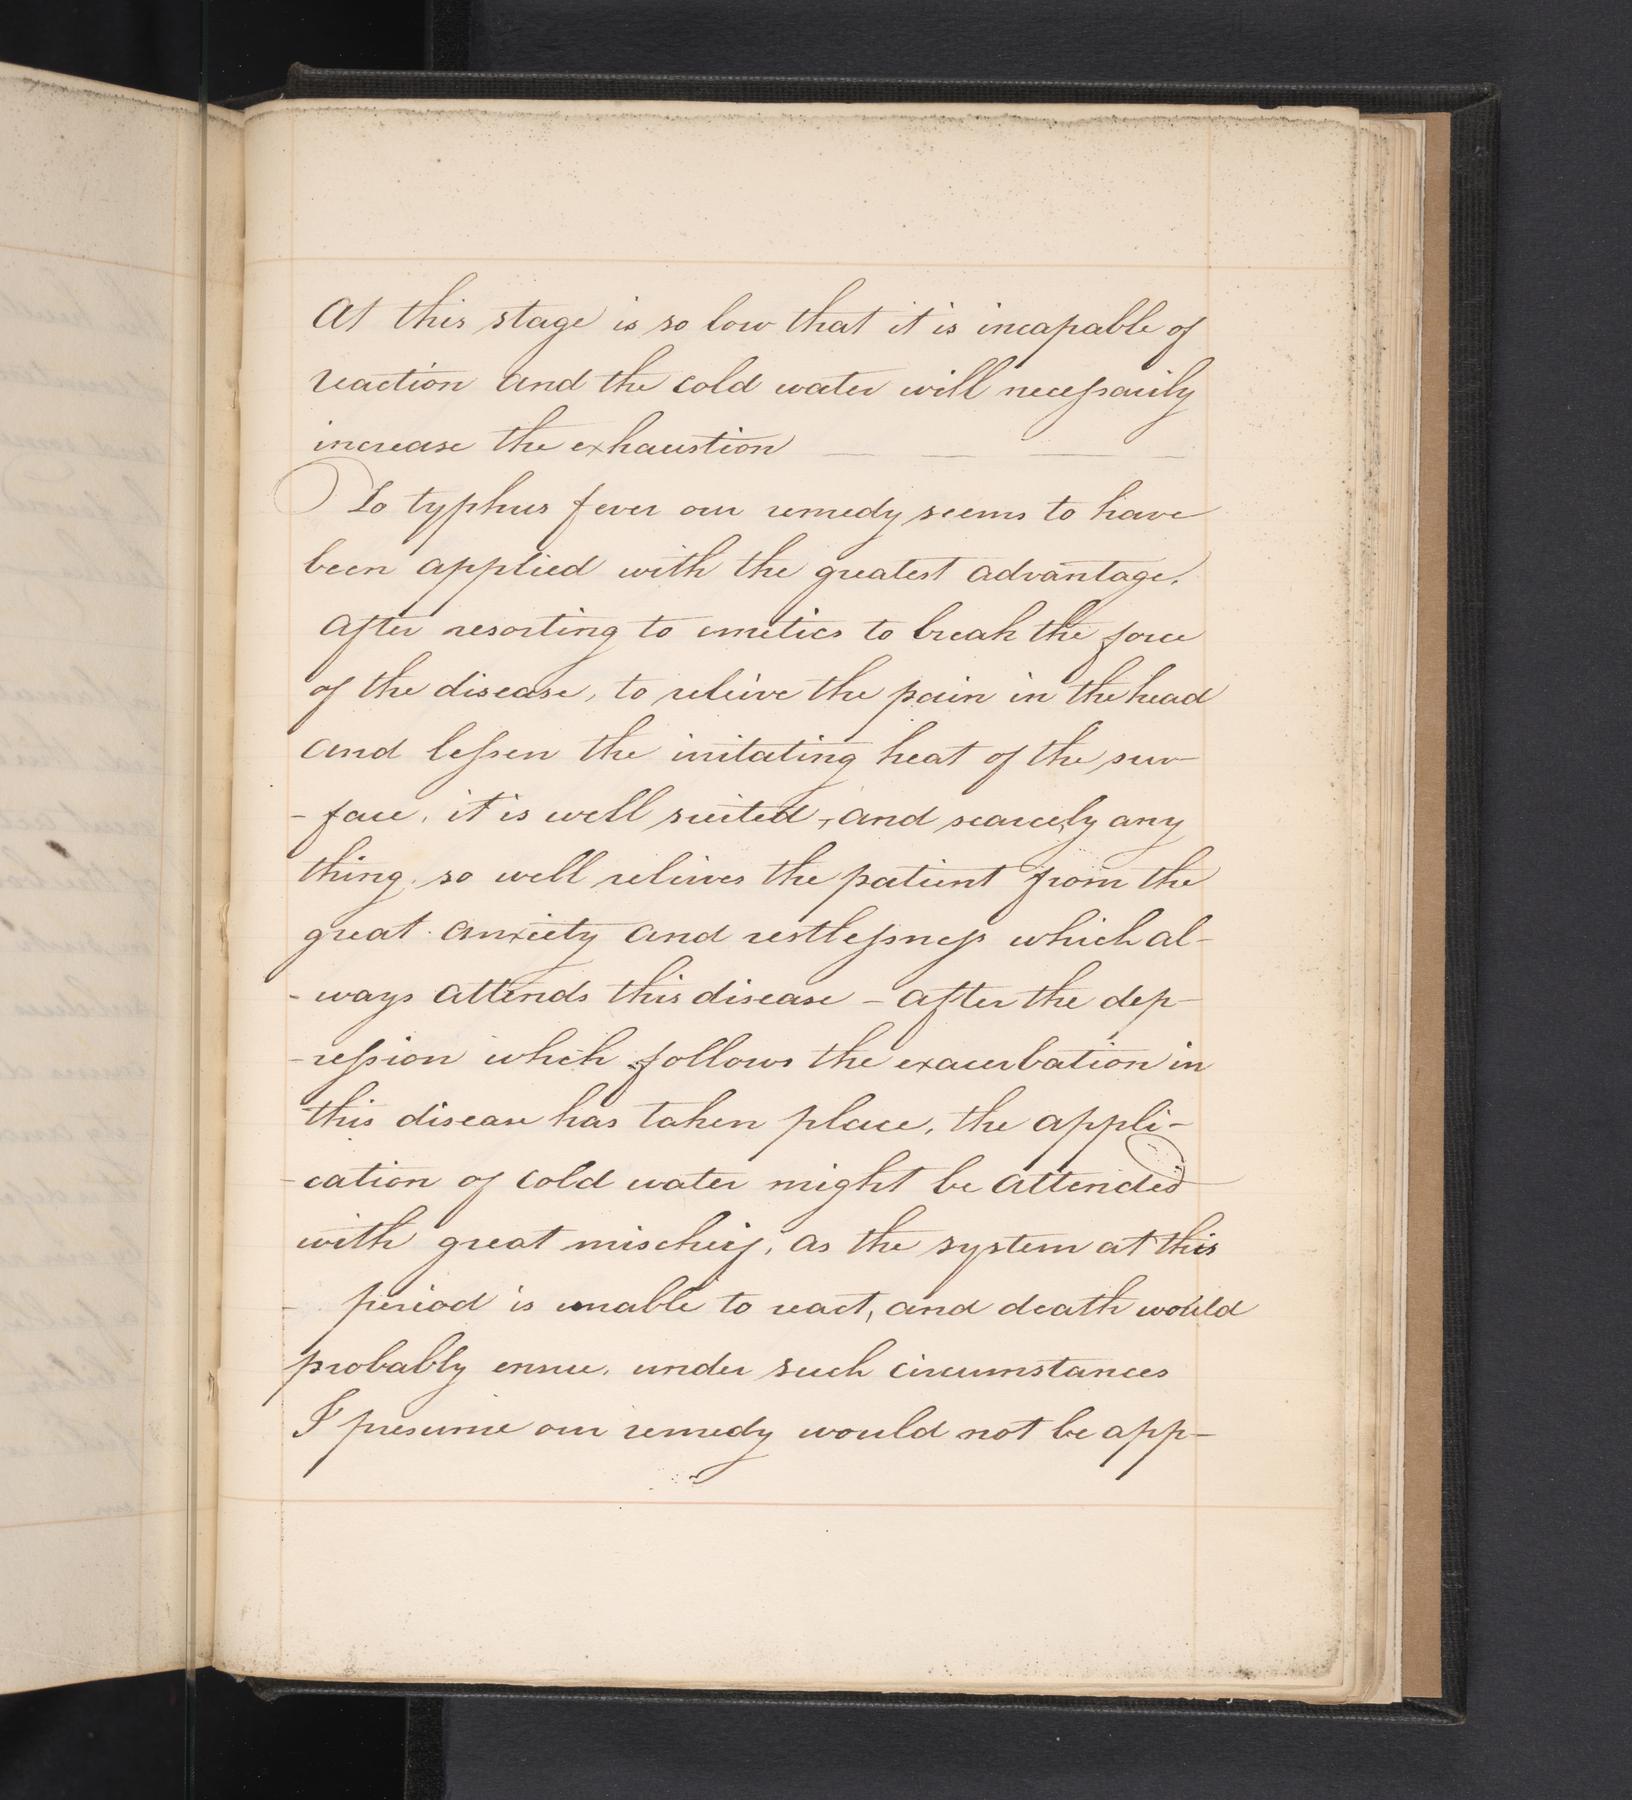 At this stage is so low that it is incapable of
reaction and the cold water will necessarily
increase the exhaustion — — — —
To typhus fever our remedy seems to have
been applied with the greatest advantage.
After resorting to emetics to break the force
of the disease, to releive the pain in the head
and lessen the irritating heat of the sur-
-face, it is well suited, and scarcely any
thing so well relieves the patient from the
great anxiety and restlessness which al-
-ways attends this disease – after the dep-
-ression which follows the exacerbation in
this disease has taken place, the appli-
-cation of cold water might be attended
with great mischief, as the system at this
- period is unable to react, and death would
probably ensue. under such circumstances
I presume our remedy would not be app-